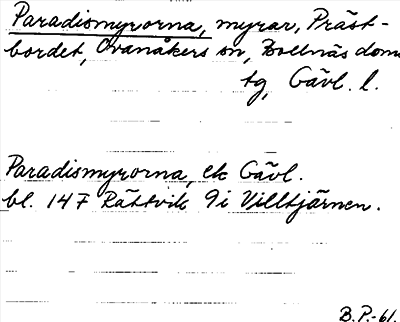 Paradismyrorna, myrar, Präst-
bordet, Ovanåkers sn, Bollnäs doms
tg, Gävl. l.
Paradismyrorna, ek Gävl.
bl. 147 Rättvik 9i Villtjärnen.
B.P.-61.